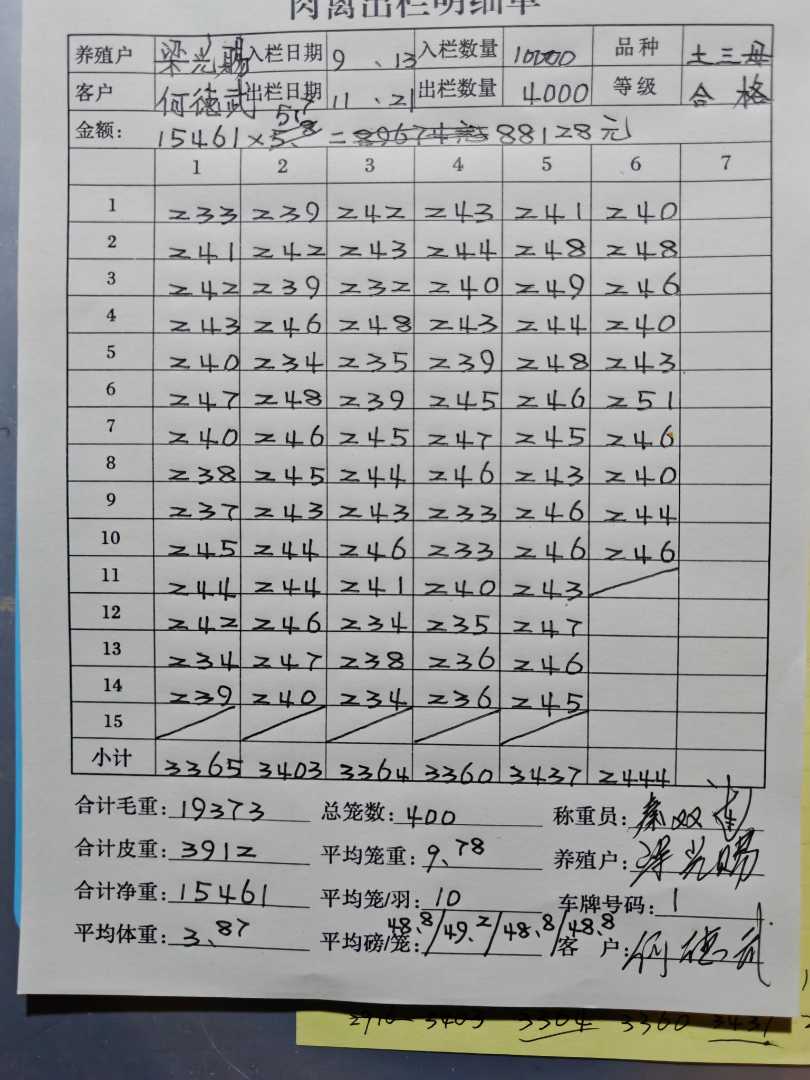 肉禽出栏明细单
养殖户 梁光赐 入栏日期 9、13 入栏数量 10000 品种 土三母
客户 何德武 出栏日期 11、21 出栏数量 4000 等级 合格
金额: 15461×5.7 = 88128元
1 2 3 4 5 6 7
1 233 239 242 243 241 240
2 241 242 243 244 248 248
3 242 239 232 240 249 246
4 243 246 248 243 244 240
5 240 234 235 239 248 243
6 247 248 239 245 246 251
7 240 246 245 247 245 246
8 238 245 244 246 243 240
9 237 243 243 233 246 244
10 245 244 246 233 246 246
11 244 244 241 240 243
12 242 246 234 235 247
13 234 247 238 236 246
14 239 240 234 236 245
15
小计 3365 3403 3364 3360 3437 2444
合计毛重: 19373 总笼数: 400 称重员: 秦双
合计皮重: 3912 平均笼重: 9.78 养殖户: 梁光赐
合计净重: 15461 平均笼/羽: 10 车牌号码: 1
平均体重: 3.87 平均磅/笼: 48.8/49.2/48.8/48.8 客户: 何德武
3403 3364 3360 3431